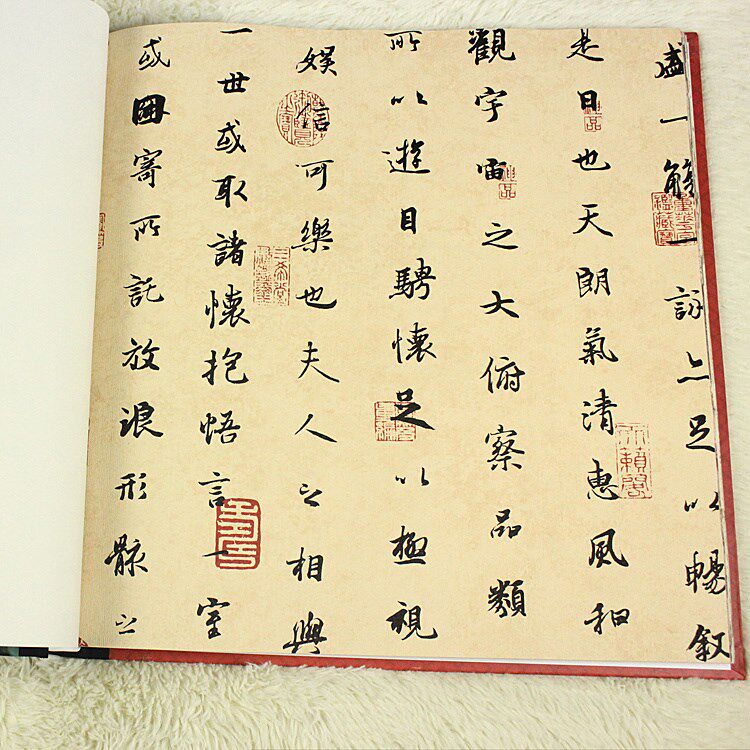 盛一觴一詠亦足以暢叙
是日也天朗氣清惠風和
觀宇宙之大俯察品類
所以遊目騁懷足以極視
娛信可樂也夫人之相與
一世或取諸懷抱悟言一室
或因寄所託放浪形骸之